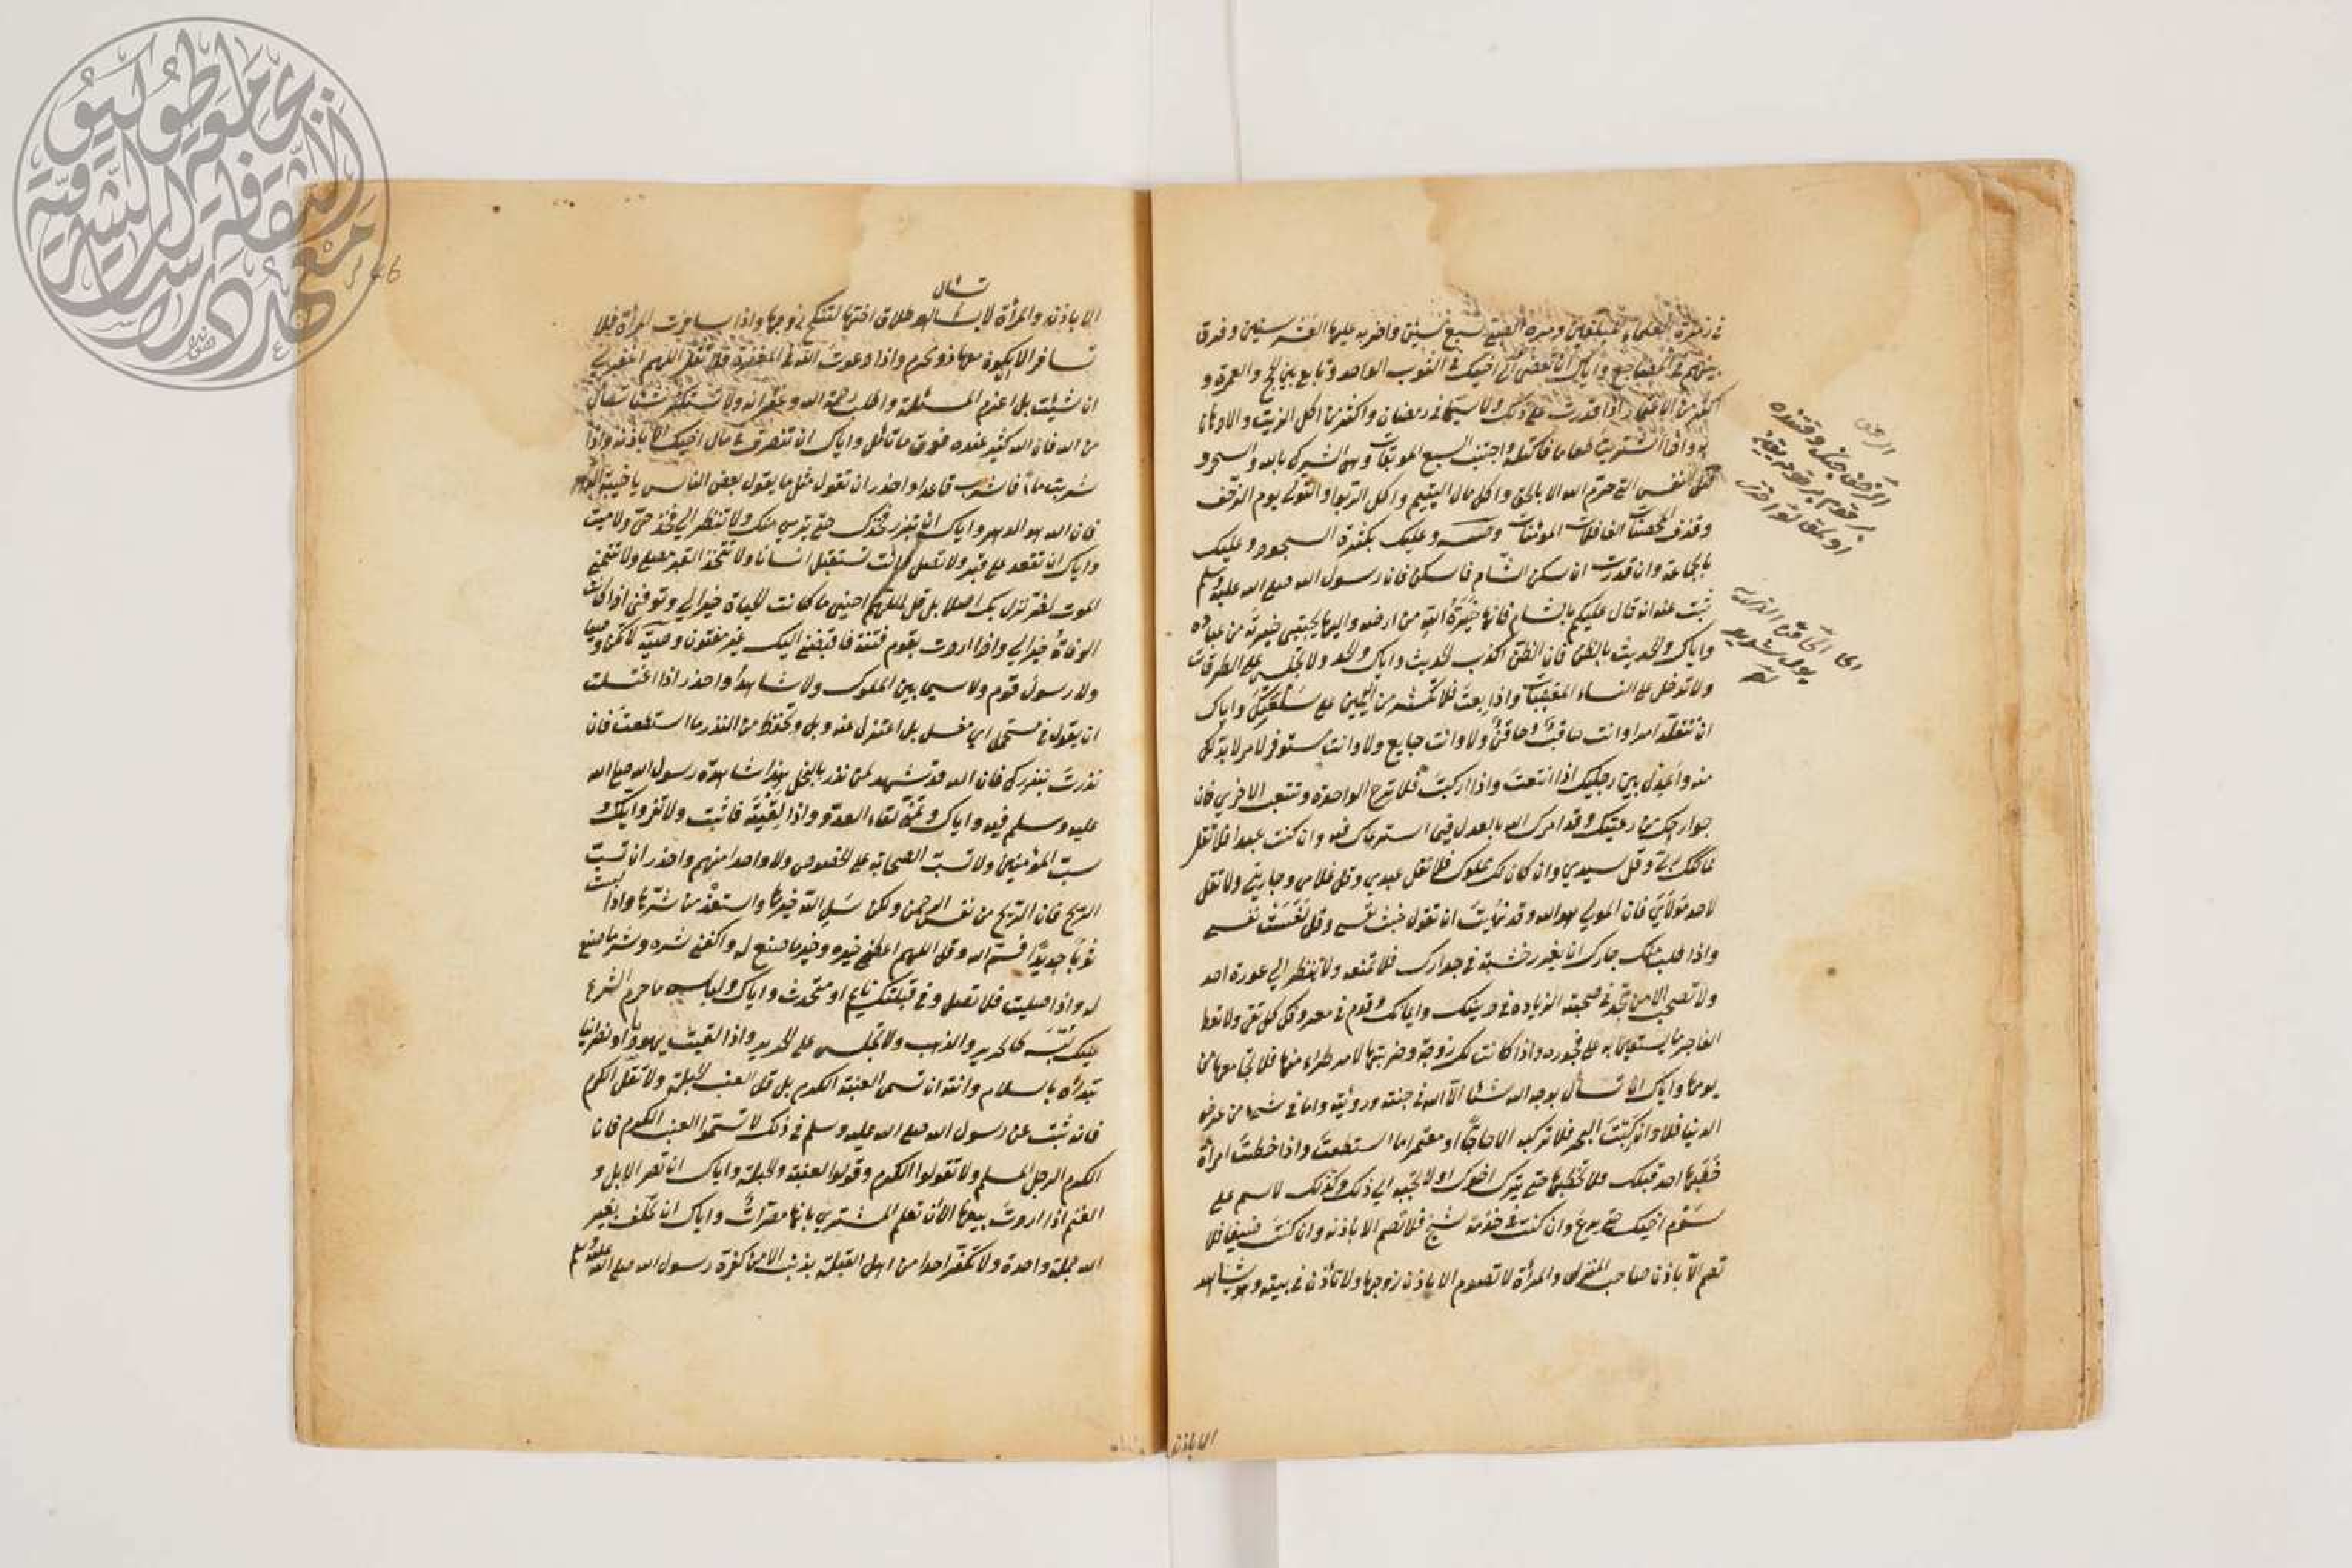 في زمرة العلماء المبلغين ومره الصبي لسبع سنين واضربه عليها لعشر سنين وفرق
بينهم في المضاجع واياك ان تفضي الى اخيك في الثوب الواحد وتابع بين الحج والعمرة و
اكثر من الاعتمار اذا قدرت على ذلك ولا سيما في رمضان واكثر من اكل الزيت والادهان
به واذا اشتريت طعاما فاكتله واجتنب السبع الموبقات وهي الشرك بالله والسحر و
قتل النفس التي حرم الله الا بالحق واكل مال اليتيم واكل الربوا والتولي يوم الزحف
وقذف المحصنات الغافلات المؤمنات وعليك بكثرة السجود وعليك
بالجماعة وان قدرت ان تسكن الشام فاسكن فان رسول الله صلى الله عليه وسلم
ثبت عنه انه قال عليكم بالشام فانها خيرة الله من ارضه واليها يجتبي خيرته من عباده
واياك والحديث بالظن فان الظن اكذب الحديث واياك والحسد ولا تجلس على الطرقات
ولا تدخل على النساء المغيبات واذا بعت فلا تكثر من اليمين على سلعتك واياك
ان تتقلد امرا وانت حاقب وحاقن ولا وانت جايع ولا وانت مستوفز لامر لا بد لك
منه واعدل بين رجليك اذا انتعلت واذا ركبت فلا ترح الواحدة وتتعب الاخرى فان
جوارحك من رعيتك وقد امرك الله بالعدل فيما استرعاك فيه وان كنت عبدا فلا تقل
لمالكك ربي وقل سيدي وان كان لك مملوك فلا تقل عبدي وقل غلامي وجاريتي ولا تقل
لاحد مولاي فان المولى هو الله وقد نهيت ان تقول خبثت نفسي وقل لقست نفسي
واذا طلب منك جارك ان يغرز خشبة في جدارك فلا تمنعه ولا تنظر الى عورة احد
ولا تصحب الا من تجد في صحبته الزيادة في دينك وايمانك وقدم في معروفك كل تقي ولا تعط
الفاجر ما يستعين به على فجوره واذا كانت لك زوجة وضربتها لامر طراء منها فلا تجامعها من
يومها واياك ان تسأل بوجه الله شيئا الا الله في جنته ورؤيته واما في شيء من عرض
الدنيا فلا وان ركبت البحر فلا تركبه الا حاجا او معتمرا ما استطعت واذا خطبت امرأة
خطبها احد قبلك فلا تخطبها حتى يترك اخوك اولا تجيبه الى ذلك وكذلك لا تسم على
سوم اخيك حتى يدع وان كنت في خدمة شيخ فلا تصم الا باذنه وان كنت ضيفا فلا
تصم الا باذن صاحب المنزل والمرأة لا تصوم الا باذن زوجها ولا تأذن في بيته وهو شاهد
الا باذنه
الزحف
ايا الحاقن
بول شديد
46
تسأل
الا باذنه والمرأة لا تسأل طلاق اختها لتنكح زوجها واذا سافرت المرأة فلا
تسافر الا يكون معها ذو محرم واذا دعوت الله في المغفرة فلا تقل اللهم اغفر لي
ان شئت بل اعزم المسئلة واطلب رحمة الله وغفرانه ولا تستكثر شيئا تسأل
من الله فان الله كبير عنده فوق ما تأمل واياك ان تتصرف في مال اخيك الا باذنه واذا
شربت ماء فاشرب قاعدا واحذر ان تقول مثل ما يقول بعض الناس يا خيبة الدهر
فان الله هو الدهر واياك ان تبرز فخذك حتى يرى منك ولا تنظر الى فخذ حي ولا ميت
واياك ان تقعد على قبر ولا تصل وانت تستقبل انسانا ولا تتخذ القبر مصلى ولا تتمنى
الموت لضر نزل بك اصلا بل قل اللهم احيني ما كانت الحياة خيرا لي وتوفني اذا كانت
الوفاة خيرا لي واذا اردت بقوم فتنة فاقبضني اليك غير مفتون وصية لا تكن وصيا
ولا رسول قوم ولا سيما بين الملوك ولا شاهدا واحذر اذا اغتسلت
ان يقول في مستحمك اي مغسل بل اعتزل عنه وبل وتحفظ من النذر ما استطعت فان
نذرت بنذرك فان الله قد شهد لمن نذر بالبخل بهذا شاهده رسول الله صلى الله
عليه وسلم فيه واياك وتمني لقاء العدو واذا لقيته فاثبت ولا تفر واياك و
سب المؤمنين ولا تسب الصحابة على الخصوص ولا واحدا منهم واحذر ان تسب
الريح فان الريح من نفس الرحمن ولكن سل الله خيرها واستعذ من شرها واذا لبست
ثوبا جديدا فسم الله وقل اللهم اعطني خيره وخير ما صنع له واكفني شره وشر ما صنع
له واذا صليت فلا تصل وفي قبلتك نايم او متحدث واياك ولباس ما حرم الشرع
عليك لبسه كالحرير والذهب ولا تجلس على الحرير واذا لقيت يهوديا او نصرانيا
تبدأه بالسلام وانته ان تسمى العنبة الكرم بل قل العنب الحبلة ولا تقل الكرم
فانه ثبت عن رسول الله صلى الله عليه وسلم في ذلك لا تسموا العنب الكرم فان
الكرم الرجل المسلم ولا تقولوا الكرم وقولوا العنبة والحبلة واياك ان تصر الابل و
الغنم اذا اردت بيعها الا ان تعلم المشتري بانها مصراة واياك ان تحلف بغير
الله جملة واحدة ولا تكفر احدا من اهل القبلة بذنب الا من كفره رسول الله صلى الله عليه وسلم